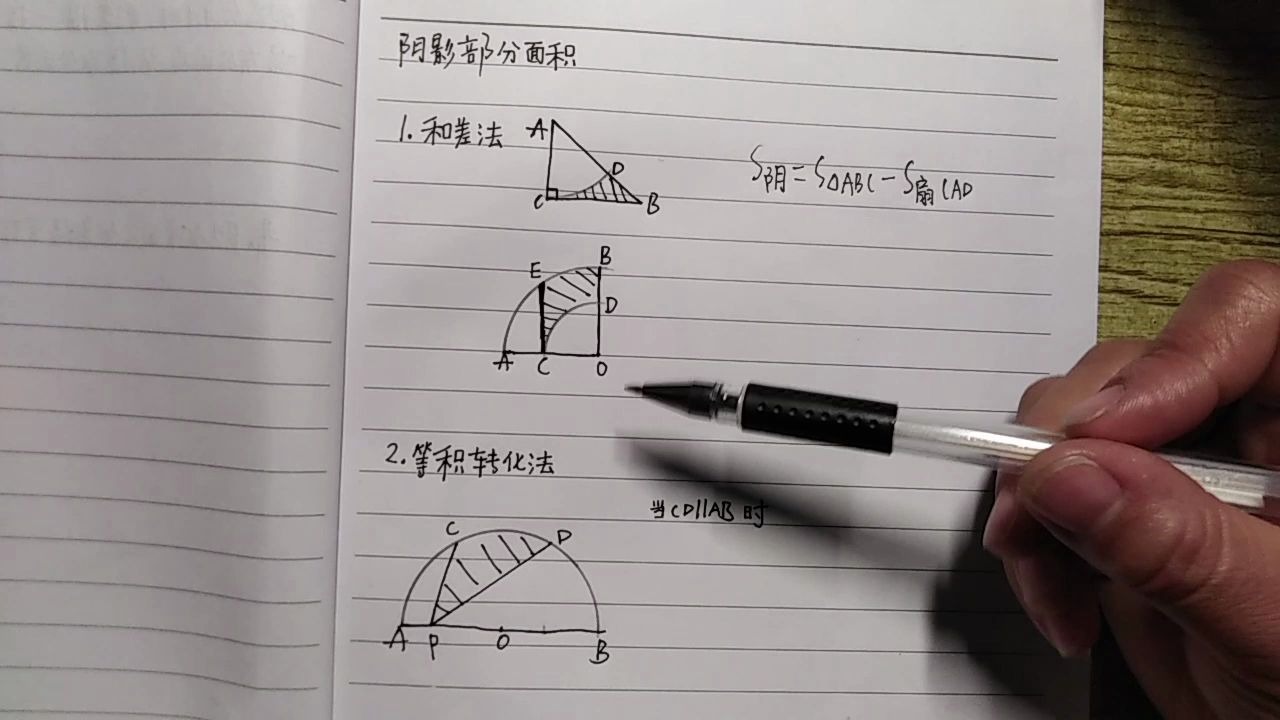 阴影部分面积
1. 和差法
A
D
C
B
S阴=S△ABC-S扇CAD
E
B
D
A
C
O
2. 等积转化法
当CD∥AB时
C
D
A
P
O
B